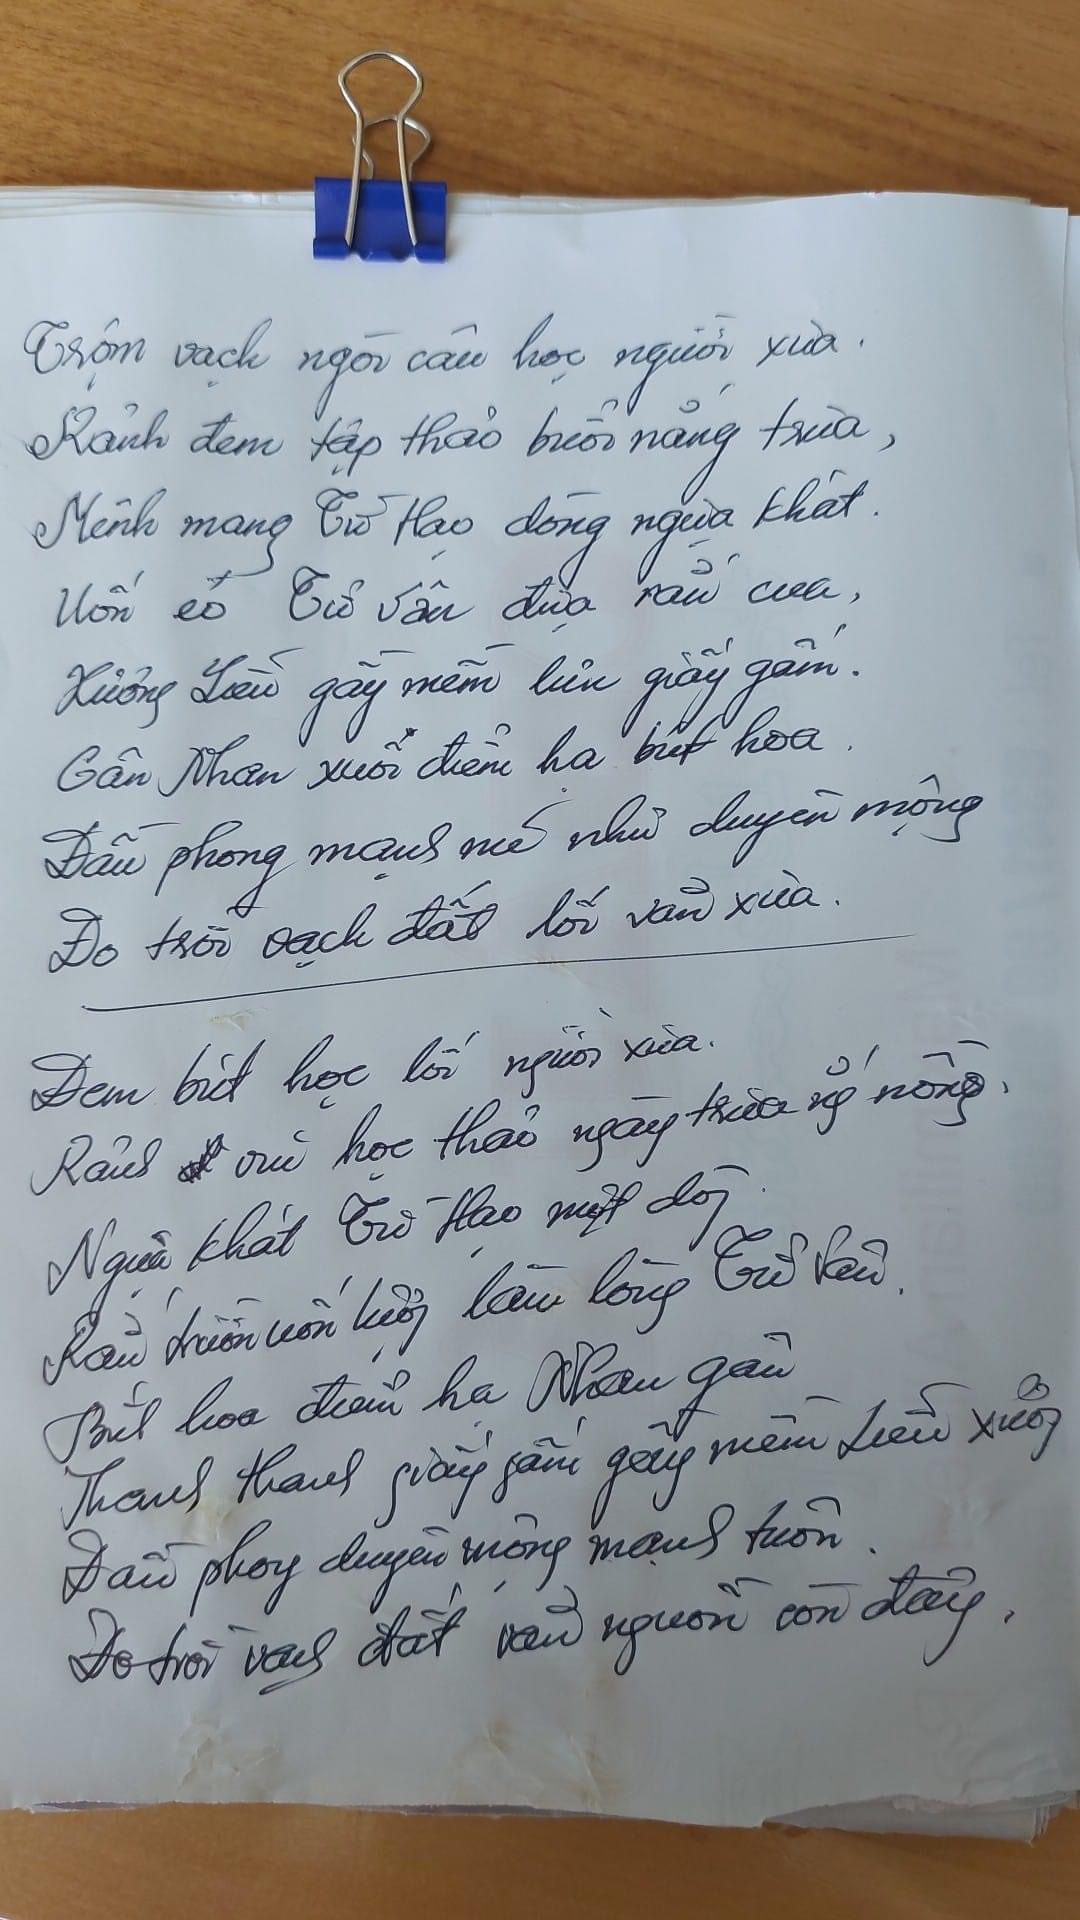 Trộm vạch ngòi câu học người xưa.
Rảnh đem tập thảo buổi nắng trưa,
Mênh mang Tử Hạo dòng ngựa khát.
Uốn éo Tử Vân đùa rắn cưa,
Xương Liễu gãy mềm lưu giấy gấm.
Gân Nhan xuôi điểm hạ bút hoa.
Dấu phong mạnh mẽ như duyên mộng
Đo trời vạch đất lối văn xưa.
Đem bút học lối người xưa.
Rảnh vui học thảo ngày trưa nắng nồng,
Ngựa khát Tử Hạo một dòng.
Rắn trườn uốn lượn làm lòng Tử Vân.
Bút hoa điểm hạ Nhan gân
Thanh thanh giấy gấm gãy mềm Liễu xương
Dấu phong duyên mộng mạnh tuôn.
Đo trời vạch đất văn nguồn còn đây,